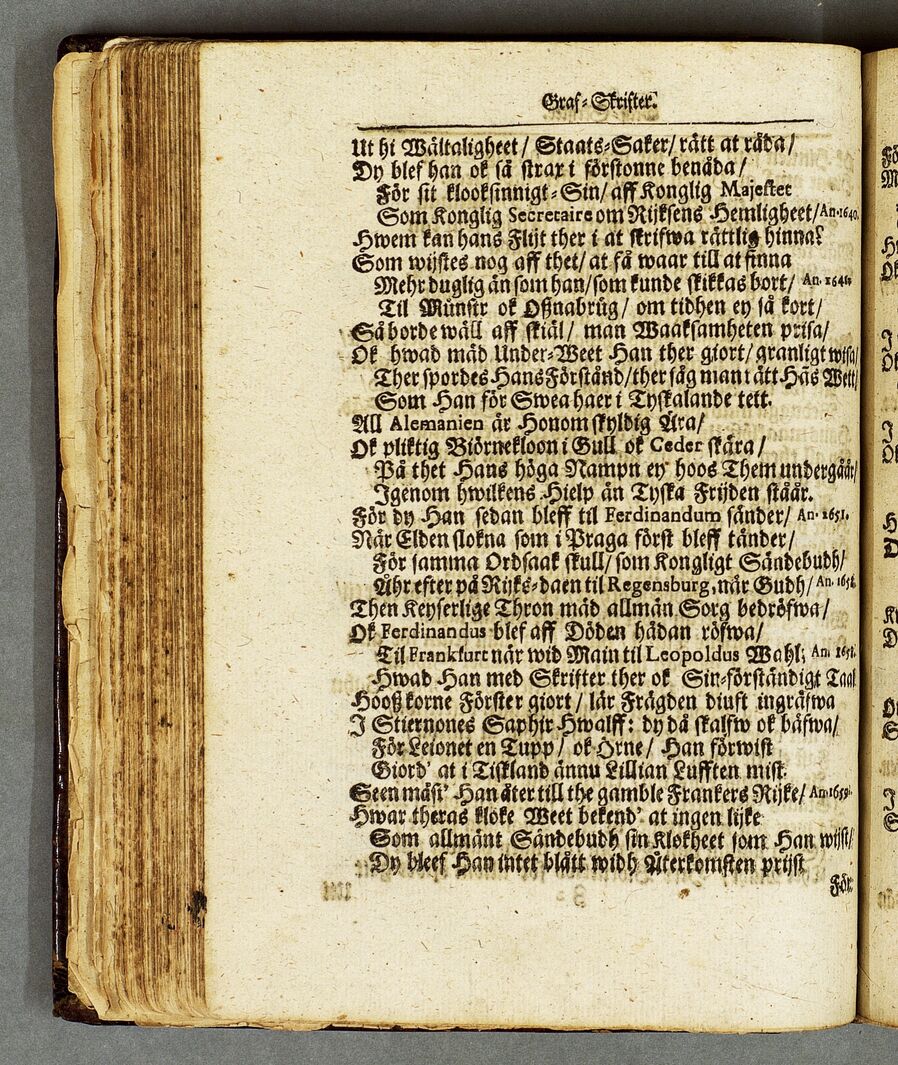 Graf-Skrifter.
Ut hi Wältaligheet / Staats-Saker/ rätt at råda/
Dy blef han ok så strax i förstonne benåda/
För sit klooksinnigt-Sin/ aff Konglig Majestet
Som Konglig Secretaire om Rijksens Hemligheet/ An. 1640.
Hwem kan hans Flijt ther i at skrifwa rättlig hinna?
Som wijstes nog aff thet/ at få waar till at finna
Mehr duglig än som han/ som kunde skikkas bort/ An. 164
Til Münstr ok Oßnabrüg / om tidhen ey så kort/
Så borde wäll aff skiäl/ man Waaksamheten prisa/
Ok hwad mäd Under-Weet Han ther giort/ granligt wisa/
Ther spordes Hans Förstånd/ ther såg man i ått Hãs Wett/
Som Han för Swea haer i Tyskalande tett.
All Alemanien är Honom skyldig Ära/
Ok pliktig Biörnekloon i Gull ok Ceder skära/
På thet Hans höga Nampn ey hoos Them undergåår/
Igenom hwilkens Hielp än Tyska Frijden ståår.
För dy Han sedan bleff til Ferdinandum sänder/ An. 1651.
När Elden slokna som i Praga först bleff tänder/
För samma Ordsaak skull/ som Kongligt Sändebudh/
Åhr efter på Rijks-daen til Regensburg, när Gudh/ An. 165
Then Keyserlige Thron mäd allmän Sorg bedröfwa/
Ok Ferdinandus blef aff Döden hädan röfwa/
Til Frankfurt när wid Main til Leopoldus Wahl; An. 165
Hwad Han med Skrifter ther ok Sin-förständigt Taal
Hooß korne Förster giort / lär Frägden diuft ingräfwa
I Stiernones Saphir-Hwalff: dy då skalfw ok bäfwa/
För Leionet en Tupp/ ok Örne/ Han förwist
Giord' at i Tiskland ännu Lillian Lufften mist.
Seen mäst' Han åter till the gamble Frankers Rijke/ An. 1659.
Hwar theras klöke Weet bekend' at ingen lijke
Som allmänt Sändebudh sin Klokheet som Han wijst/
Dy bleef Han intet blått widh Återkomsten prijst
För